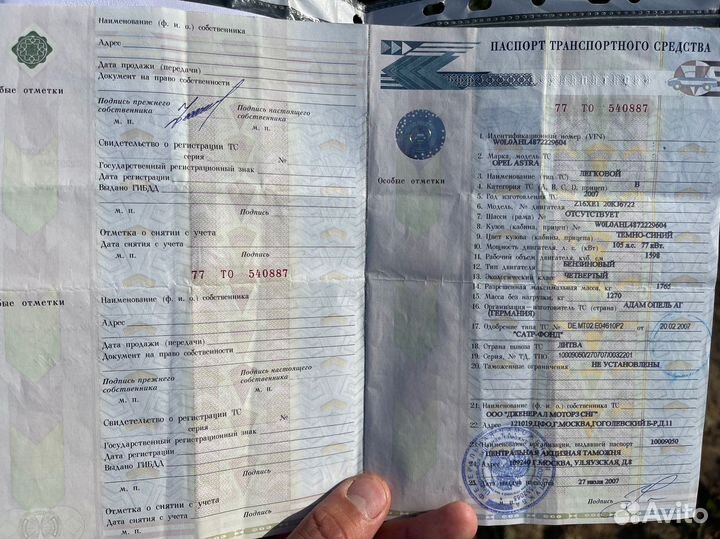 Наименование (ф. и. о.) собственника
Адрес
Дата продажи (передачи)
Документ на право собственности
Подпись прежнего собственника
Подпись настоящего собственника
М. П.
М. П.
Свидетельство о регистрации ТС
серия №
Государственный регистрационный знак
Дата регистрации
Выдано ГИБДД
М. П.
Подпись
Отметка о снятии с учета
Дата снятия с учета
М. П.
Подпись
77 ТО 540887
Наименование (ф. и. о.) собственника
Адрес
Дата продажи (передачи)
Документ на право собственности
Подпись прежнего собственника
Подпись настоящего собственника
М. П.
М. П.
Свидетельство о регистрации ТС
серия №
Государственный регистрационный знак
Дата регистрации
Выдано ГИБДД
М. П.
Подпись
Отметка о снятии с учета
Дата снятия с учета
М. П.
Подпись
обые отметки
обые отметки
Особые отметки
ПАСПОРТ ТРАНСПОРТНОГО СРЕДСТВА
77 ТО 540887
1. Идентификационный номер (VIN)
W0L0AHL4872229604
2. Марка, модель ТС
OPEL ASTRA
3. Наименование (тип ТС) ЛЕГКОВОЙ
4. Категория ТС (A, B, C, D, прицеп) B
5. Год изготовления ТС 2007
6. Модель, № двигателя Z16XE1 20KJ6722
7. Шасси (рама) № ОТСУТСТВУЕТ
8. Кузов (кабина, прицеп) № W0L0AHL4872229604
9. Цвет кузова (кабины, прицепа) ТЕМНО-СИНИЙ
10. Мощность двигателя, л. с. (кВт) 105 л.с. 77 кВт.
11. Рабочий объем двигателя, куб. см 1598
12. Тип двигателя БЕНЗИНОВЫЙ
13. Экологический класс ЧЕТВЕРТЫЙ
14. Разрешенная максимальная масса, кг 1765
15. Масса без нагрузки, кг 1270
16. Организация—изготовитель ТС (страна) АДАМ ОПЕЛЬ АГ
(ГЕРМАНИЯ)
17. Одобрение типа ТС № DE.MT02.E04610P2 от 20.02.2007
"САТР-ФОНД"
18. Страна вывоза ТС ЛИТВА
19. Серия, № ТД, ТПО 10009050/270707/0032201
20. Таможенные ограничения НЕ УСТАНОВЛЕНЫ
21. Наименование (ф. и. о.) собственника ТС
ООО "ДЖЕНЕРАЛ МОТОРЗ СНГ"
22. Адрес 121019,ЦФО,Г.МОСКВА,ГОГОЛЕВСКИЙ Б-Р,Д.11
23. Наименование организации, выдавшей паспорт 10009050
ЦЕНТРАЛЬНАЯ АКЦИЗНАЯ ТАМОЖНЯ
24. Адрес 109240 Г.МОСКВА, УЛ.ЯУЗСКАЯ, Д.8
25. Дата выдачи паспорта 27 июля 2007
Подпись
Avito